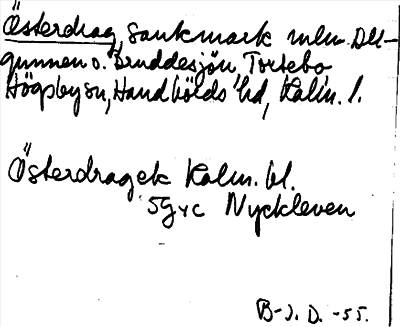 Österdrag, sankmark mln Dll-
gunnen o. Bruddesjön, Tortebo
Högsby sn, Handbölds hd, Kalm. l.
Österdragek Kalm. bl.
5G4c Nyckleven
B-J. D. -55.